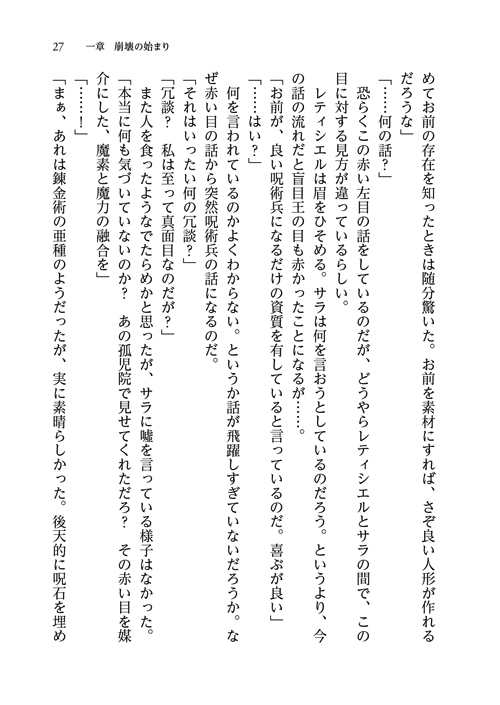 27　一章　崩壊の始まり
めてお前の存在を知ったときは随分驚いた。お前を素材にすれば、さぞ良い人形が作れる
だろうな」
「……何の話？」
恐らくこの赤い左目の話をしているのだが、どうやらレティシエルとサラの間で、この
目に対する見方が違っているらしい。
レティシエルは眉をひそめる。サラは何を言おうとしているのだろう。というより、今
の話の流れだと盲目王の目も赤かったことになるが……。
「お前が、良い呪術兵になるだけの資質を有していると言っているのだ。喜ぶが良い」
「……はい？」
何を言われているのかよくわからない。というか話が飛躍しすぎていないだろうか。な
ぜ赤い目の話から突然呪術兵の話になるのだ。
「それはいったい何の冗談？」
「冗談？　私は至って真面目なのだが？」
また人を食ったようなでたらめかと思ったが、サラに嘘を言っている様子はなかった。
「本当に何も気づいていないのか？　あの孤児院で見せてくれただろ？　その赤い目を媒
介にした、魔素と魔力の融合を」
「……！」
「まぁ、あれは錬金術の亜種のようだったが、実に素晴らしかった。後天的に呪石を埋め